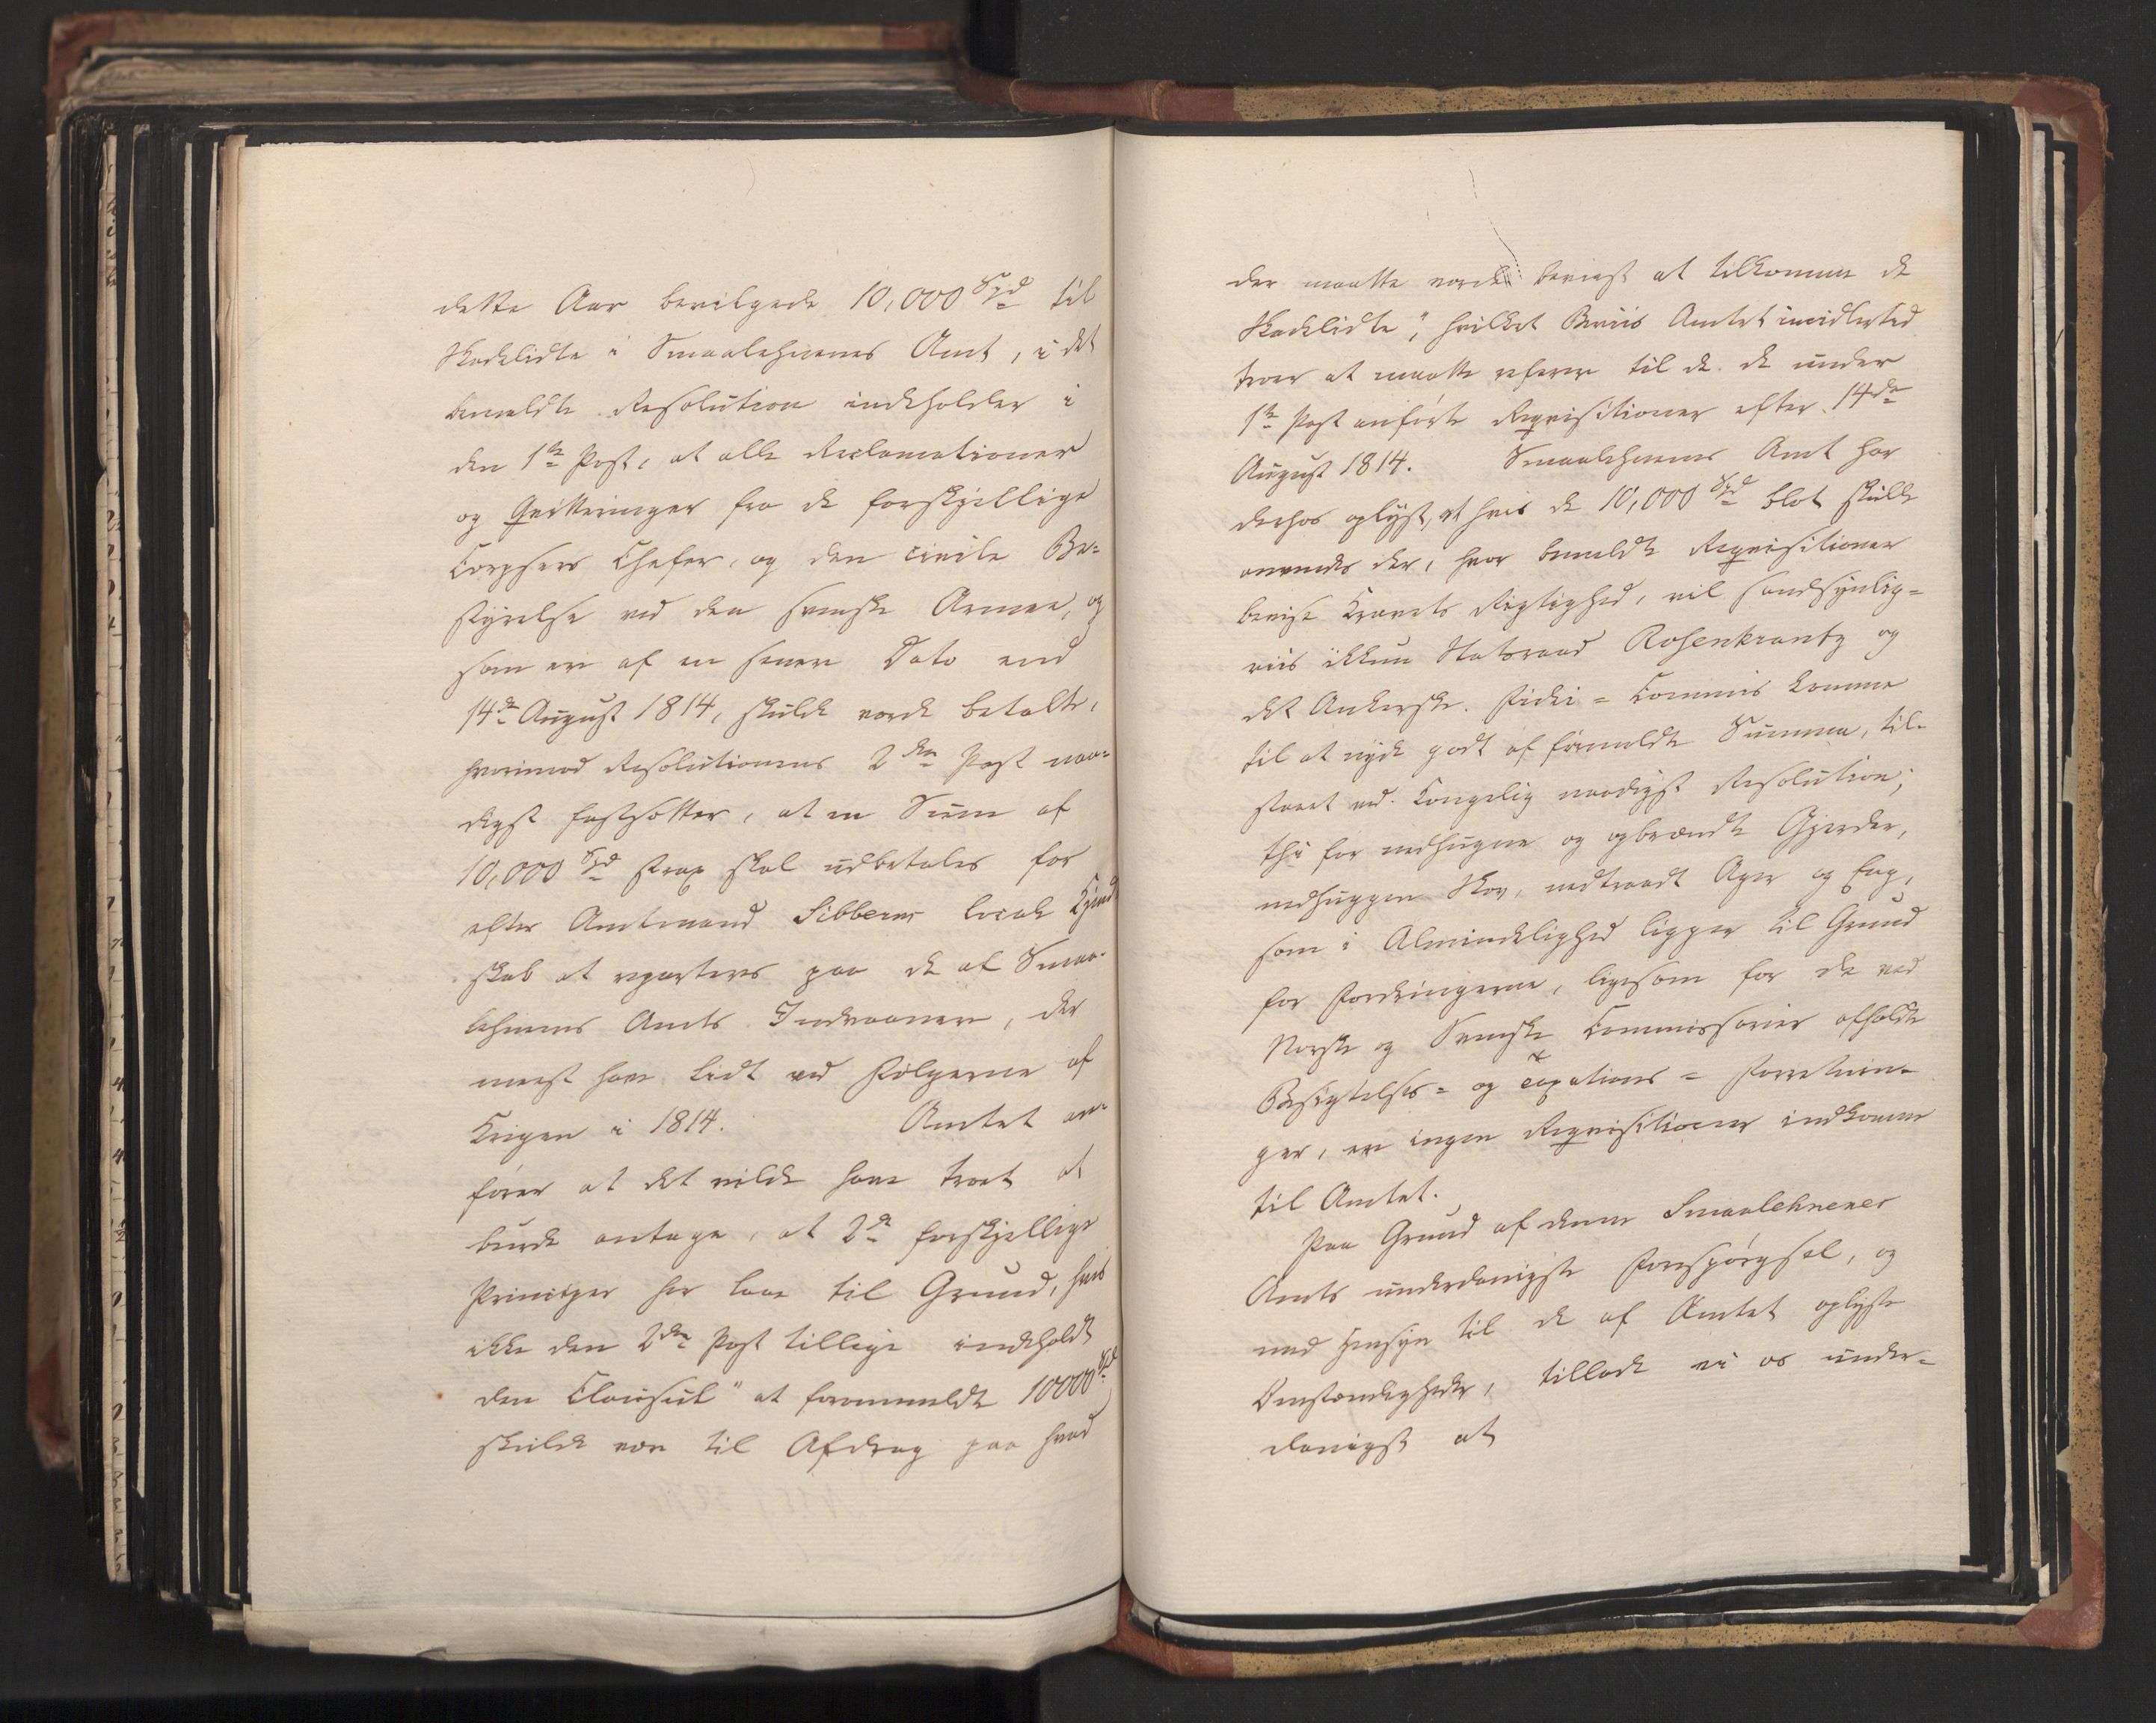 dette Aar bevilgede 10,000 Spd til
Skadelidte i Smaalehnenes Amt, i det
bemeldte Resolution indeholder i
den 1ste Post, at alle Reclamationer
og Qvitteringer fra de forskjellige
Corpsers Chefer, og den civile Be=
styrelse ved den svenske Armee, og
som ere af en senere Dato end
14de August 1814, skulde vorde betalte,
hvorimod Resolutionens 2den Post naa=
digst fastsætter, at en Sum af
10,000 Spd strax skal udbetales for
efter Amtmand Sibberns locale Kjend
skab at reparteres paa de af Smaa=
lehnenes Amts Indvaanere, der
meest have lidt ved Følgerne af
Krigen i 1814. Amtet an=
fører at det vilde have troet at
burde antage, at 2de forskjellige
Principer her laae til Grund, hvis
ikke den 2den Post tillige indeholdt
den Clausul " at forommeldte 10000 Spd
skulde være til Afdrag paa hvad
der maatte vorde beviist at tilkomme de
Skadelidte", hvilket Beviis Amtet imidlertid
troer at maatte referere til de under
1ste Post anførte Reqvisitioner efter 14de
August 1814. Smaalehnenes Amt har
derhos oplyst, at hvis de 10,000 Spd blot skulde
anvendes der, hvor bemeldte Reqvisitioner
bevise Kravets Rigtighed, vil sandsynlig=
viis ikkun Statsraad Rosenkrantz og
det Ankerske Fidei=Commis komme
til at nyde godt af førmeldte Summa, til=
staaet ved Kongelig naadigst Resolution;
thi for nedhugne og opbrændte Gjerder,
nedhuggen Skov, nedtraadt Ager og Eng,
som i Almindelighed ligger til Grund
for Fordringerne, ligesom for de ved
Norske og Svenske Commissairer afholdte
Besigtelses= og Taxations=Forretnin=
ger, ere ingen Reqvisitioner indkomne
til Amtet.
Paa Grund af denne Smaalehnenes
Amts underdanigste Forespørgsel, og
med Hensyn til de af Amtet oplyste
Omstændigheder, tillade vi os under=
danigst at